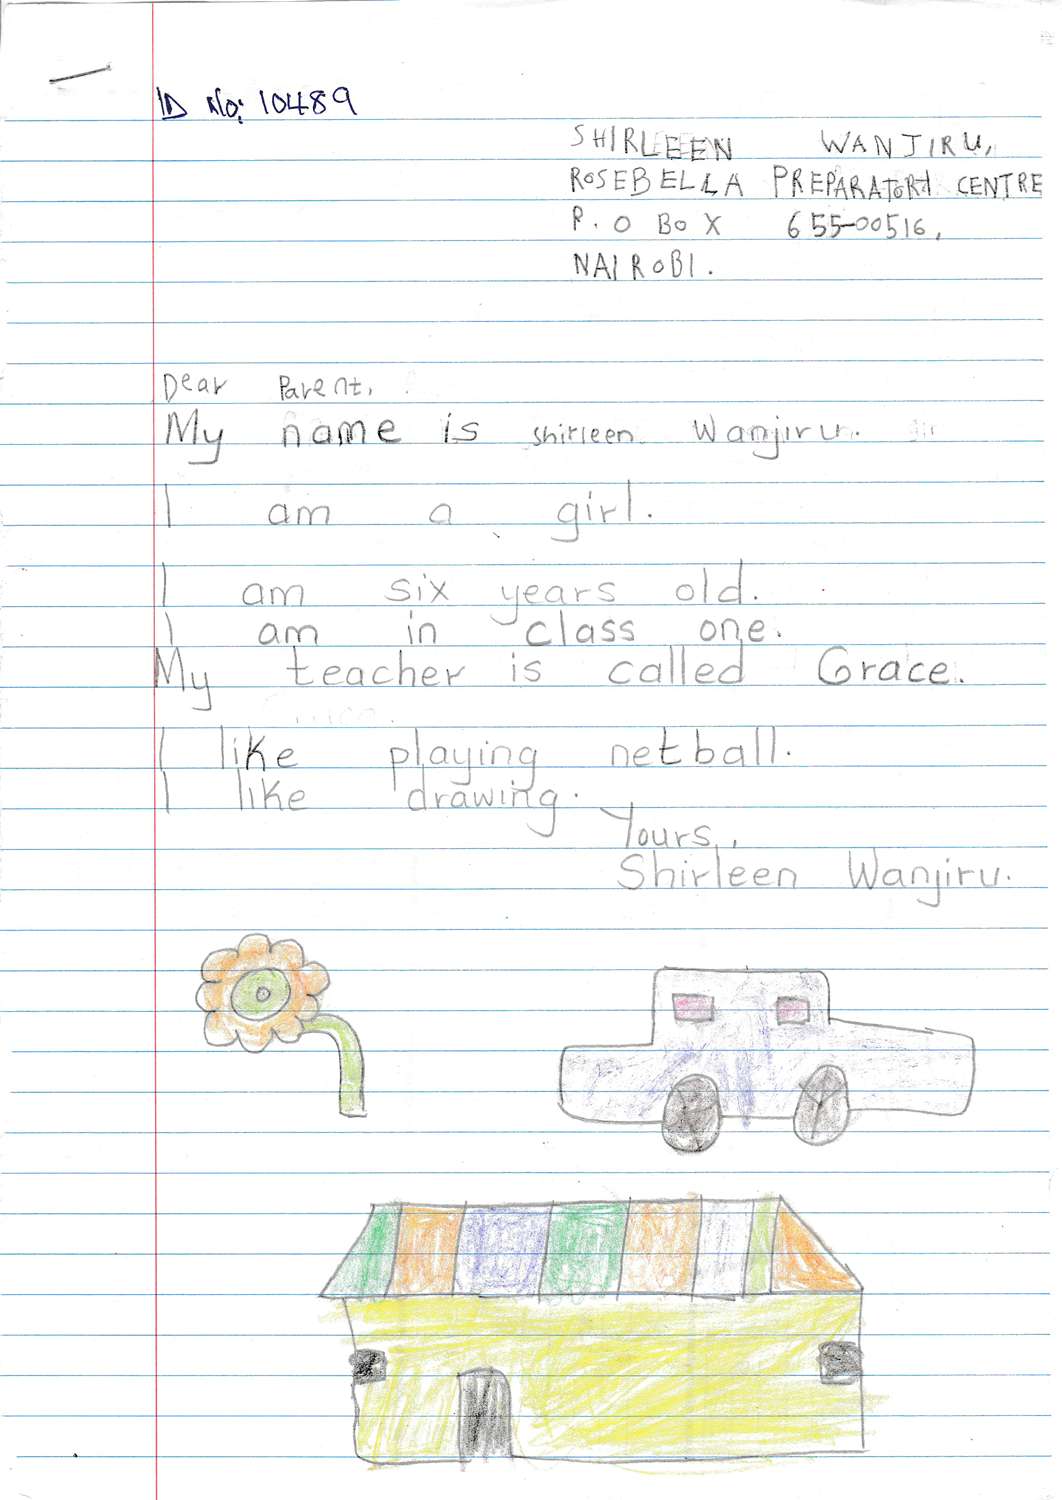 ID No: 10489
SHIRLEEN WANJIRU,
ROSEBELLA PREPARATORY CENTRE
P.O BOX 655-00516,
NAIROBI.
Dear Parent,
My name is shirleen Wanjiru.
I am a girl.
I am six years old.
I am in class one.
My teacher is called Grace.
I like playing netball.
I like drawing.
Yours,
Shirleen Wanjiru.